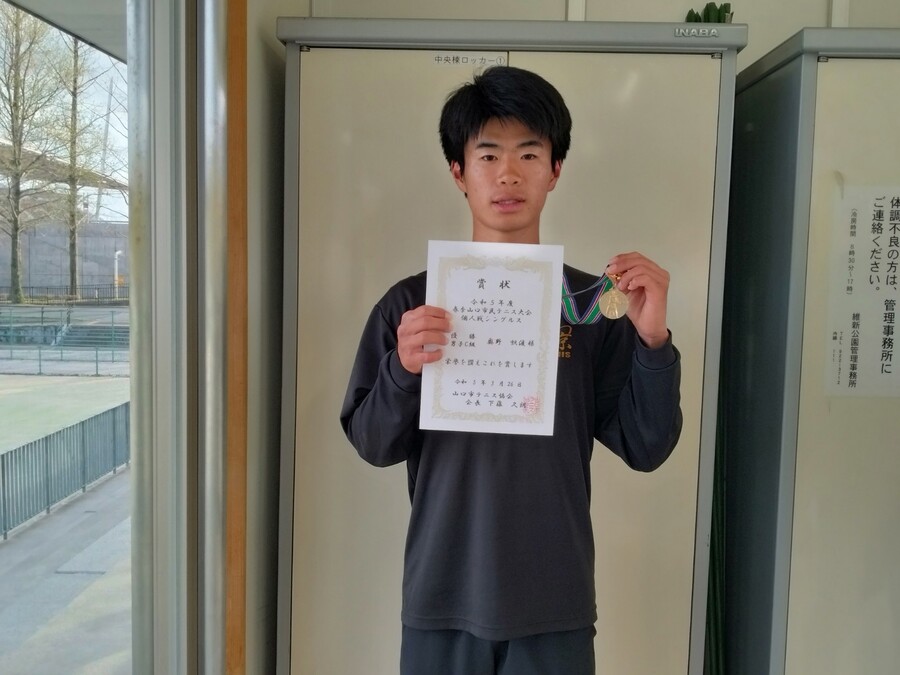 INABA
中央棟ロッカー①
賞状
令和5年度
春季山口市民テニス大会
個人戦シングルス
優勝
男子C組
栄誉を讃えこれを賞します
令和5年3月26日
山口市テニス協会
会長
体調不良の方は、管理事務所に
ご連絡ください。
維新公園管理事務所